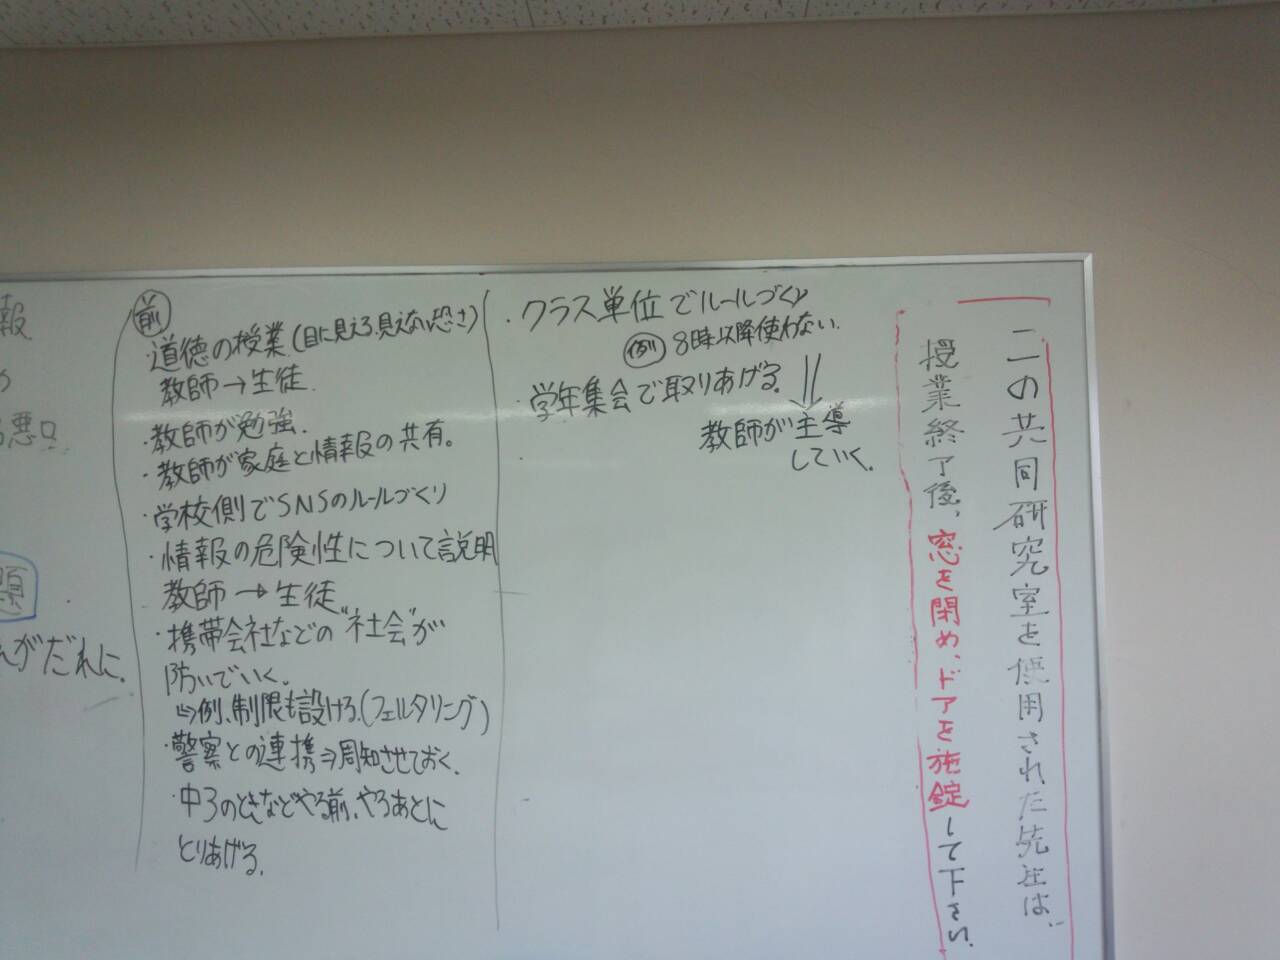 報
悪口
題
がだれに。
前
道徳の授業(目に見える、見えない恐さ)
教師→生徒
・教師が勉強.
・教師が家庭と情報の共有。
・学校側でSNSのルールづくり
・情報の危険性について説明
教師→生徒
・携帯会社などの"社会"が
防いでいく。
⇒例、制限も設ける。(フェルタリング)
・警察との連携⇒周知させておく。
・中3のときなどやる前、やるあとに
とりあげる。
・クラス単位でルールづくり
例 8時以降使わない.
・学年集会で取りあげる。
教師が主導
していく。
この共同研究室を使用された先生は、
授業終了後、窓を閉め、ドアを施錠して下さい。